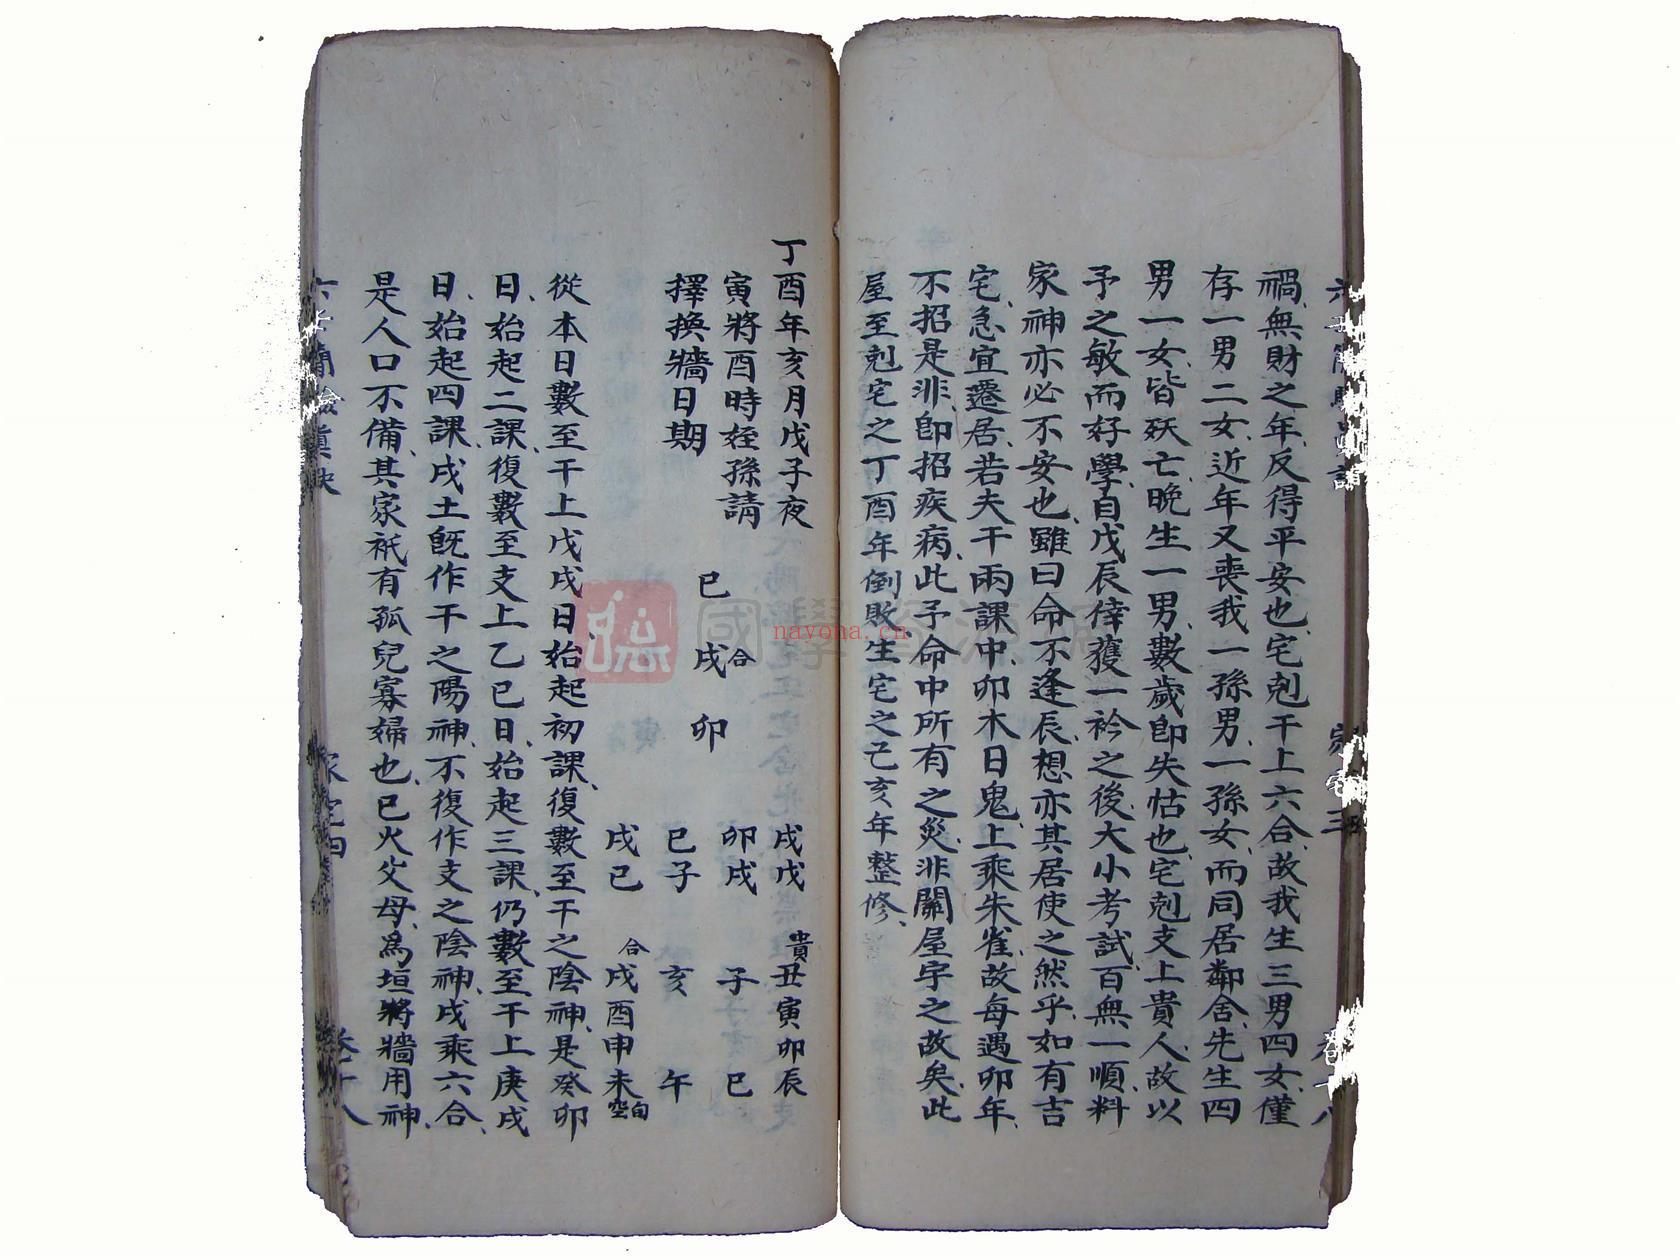 禍、無財之年、反得平安也、宅剋干上六合、故我生三男四女、僅
存一男二女、近年又喪我一孫男、一孫女、而同居鄰舍、先生四
男一女、皆殀亡、晚生一男、數歲卽失怙也、宅剋支上貴人、故以
予之敏而好學、自戊辰倖獲一衿之後、大小考試、百無一順、料
家神亦必不安也、雖曰命不逢辰、想亦其居使之然乎、如有吉
宅、急宜遷居、若夫干兩課中、卯木日鬼、上乘朱雀、故每遇卯年、
不招是非、卽招疾病、此予命中所有之災、非關屋宇之故矣、此
屋至剋宅之丁酉年倒敗、生宅之己亥年整修、
丁酉年亥月戊子夜
寅將酉時姪孫請
擇換牆日期
巳
戌合
卯
戌戊 貴丑寅卯辰
卯戌 子 巳
巳子 亥 午
戌巳 合戌酉申未空旬
從本日數至干上戊戌日、始起初課、復數至干之陰神、是癸卯
日、始起二課、復數至支上乙巳日、始起三課、仍數至干上庚戌
日、始起四課、戌土旣作干之陽神、不復作支之陰神、戌乘六合、
是人口不備、其家衹有孤兒寡婦也、巳火父母、爲垣將牆用神、
家宅四
國學資源
nayona.cn